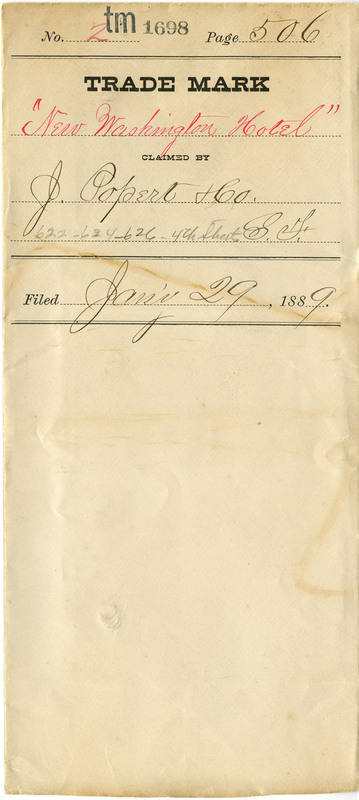 No. 2 tm 1698 Page 506
TRADE MARK
"New Washington Hotel"
CLAIMED BY
J. Popert & Co.
622-624-626-4th Street S. F.
Filed Jan'y 29, 1889.